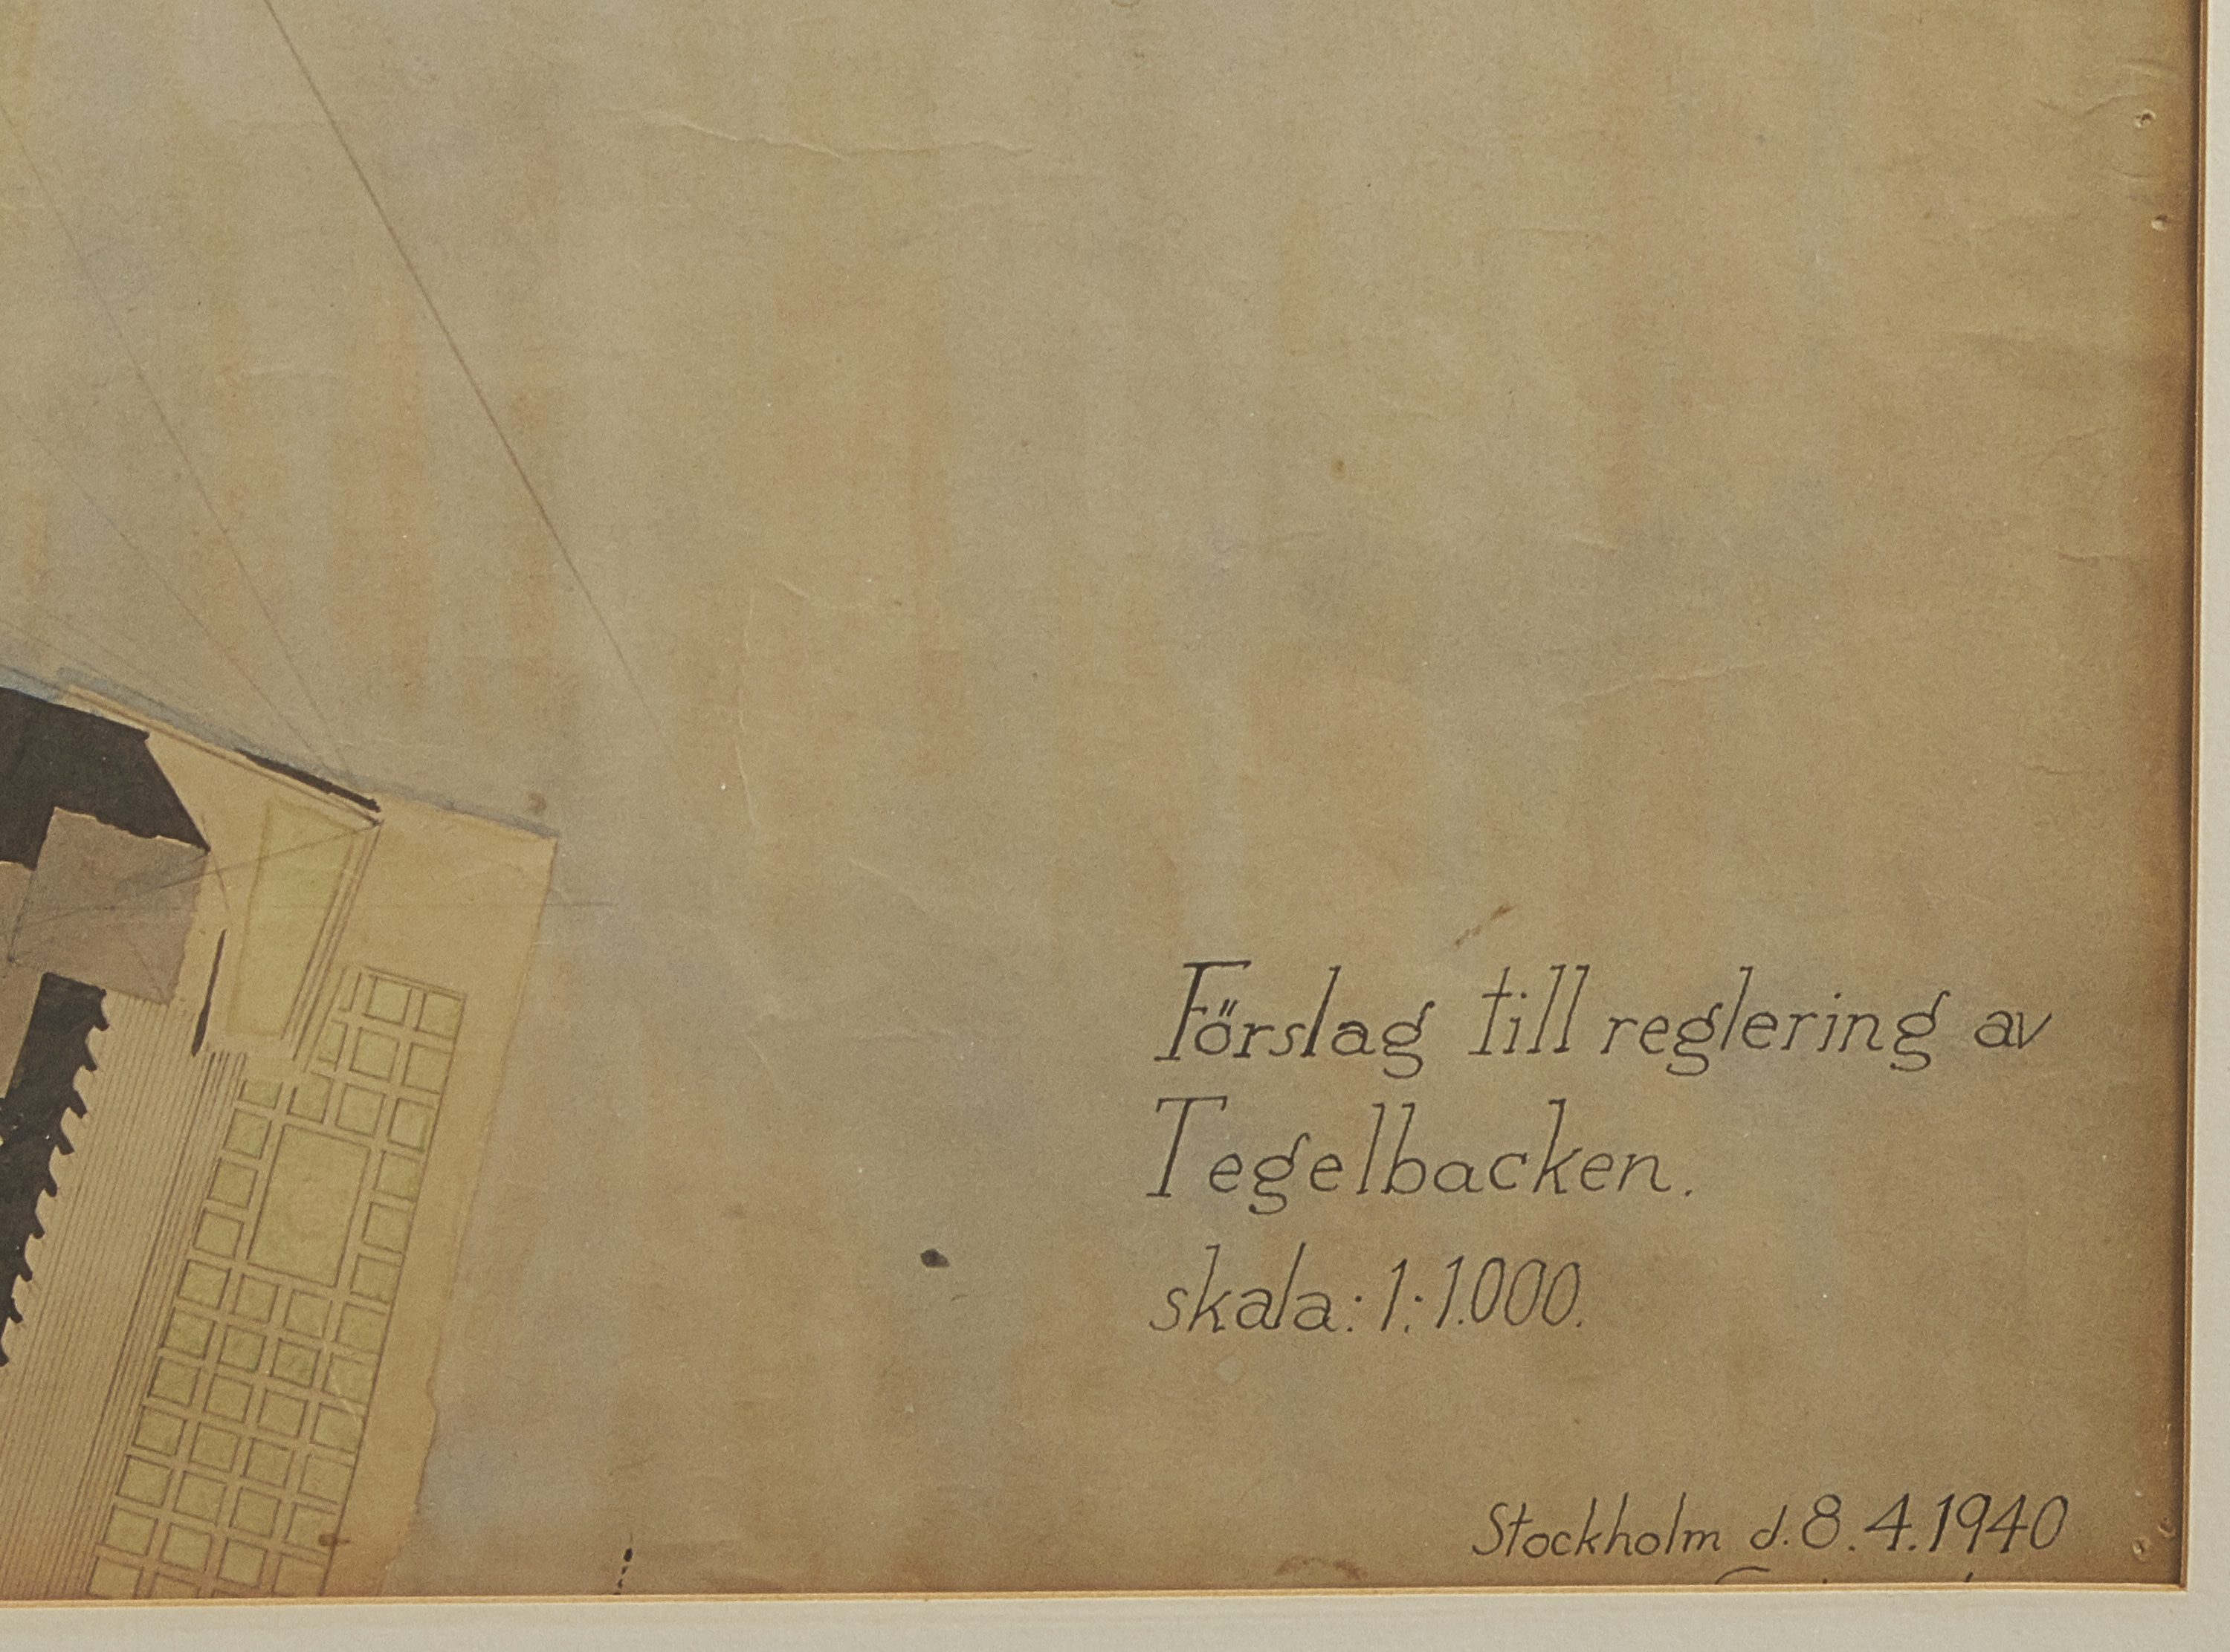 Förslag till reglering av
Tegelbacken.
skala: 1:1.000.
Stockholm d. 8.4.1940